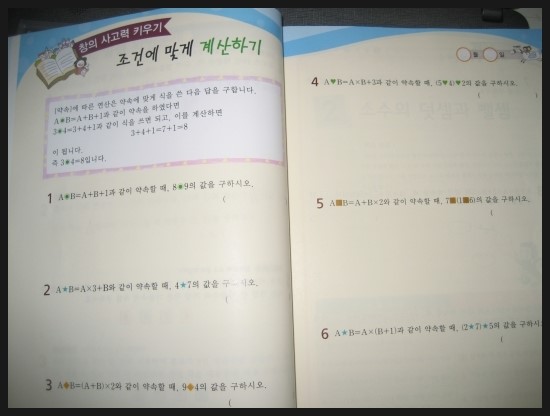 창의 사고력 키우기
조건에 맞게 계산하기
[약속]에 따른 연산은 약속에 맞게 식을 쓴 다음 답을 구합니다.
A◉B=A+B+1과 같이 약속을 하였다면
3◉4=3+4+1과 같이 식을 쓰면 되고, 이를 계산하면
3+4+1=7+1=8
이 됩니다.
즉 3◉4=8입니다.
1 A◉B=A+B+1과 같이 약속할 때, 8◉9의 값을 구하시오.
(
2 A★B=A×3+B와 같이 약속할 때, 4★7의 값을 구하시오.
(
3 A◈B=(A+B)×2와 같이 약속할 때, 9◈4의 값을 구하시오.
(
4 A♥B=A×B+3과 같이 약속할 때, (5♥4)♥2의 값을 구하시오.
(
5 A■B=A+B×2와 같이 약속할 때, 7■(1■6)의 값을 구하시오.
(
6 A★B=A×(B+1)과 같이 약속할 때, (2★7)★5의 값을 구하시오
(